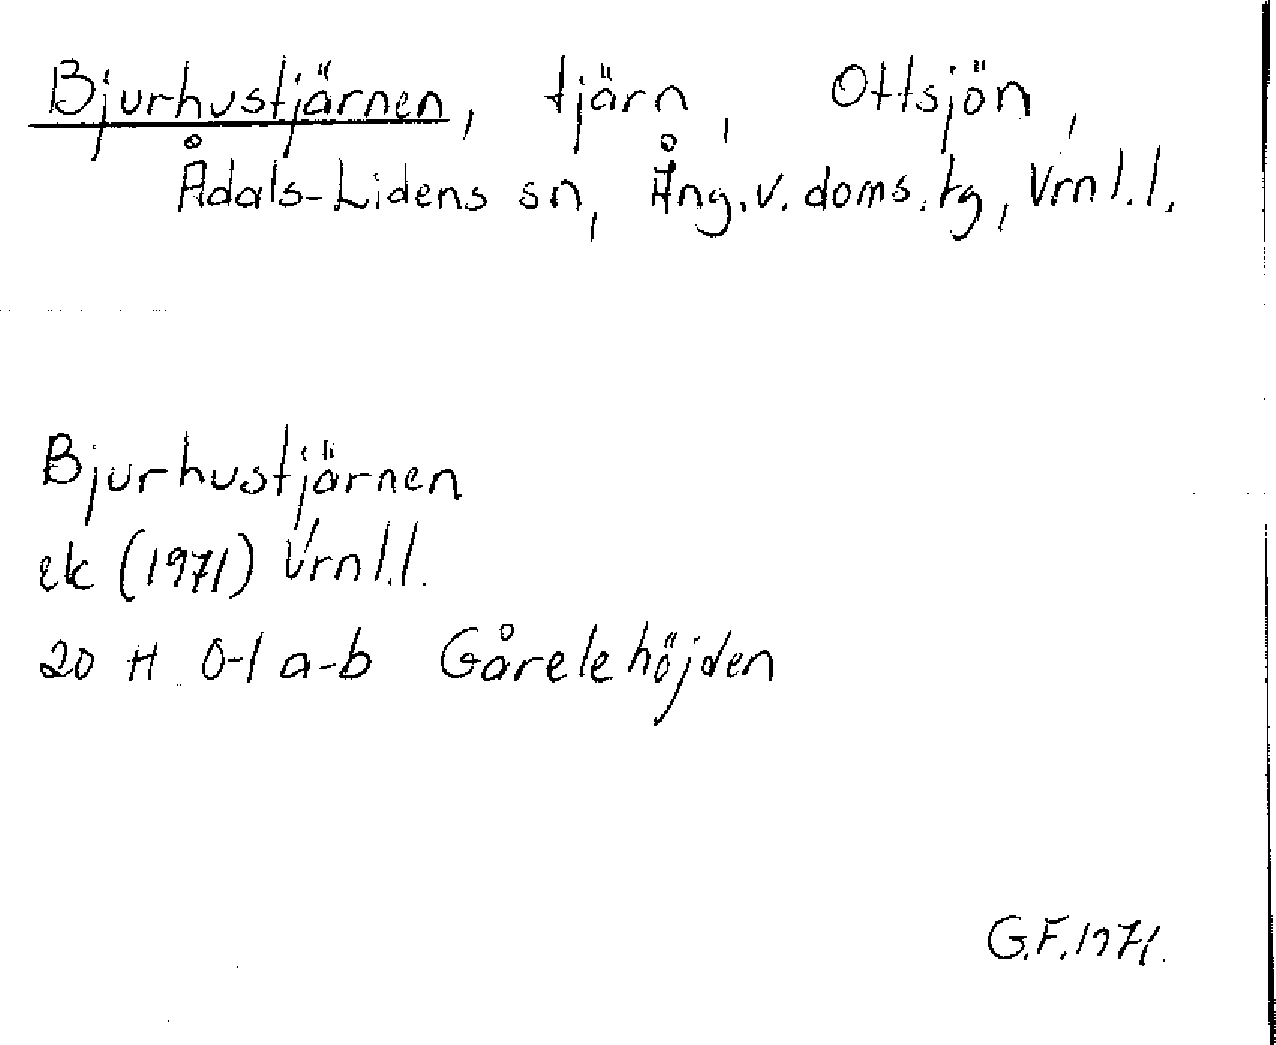 Bjurhustjärnen, tjärn, Ottsjön,
Ådals-Lidens sn, Ång.v.doms.tg, Vrnl.l.
Bjurhustjärnen
ek (1971) Vrnl.l.
20 H 0-1 a-b Gårelehöjden
G.F.1971.